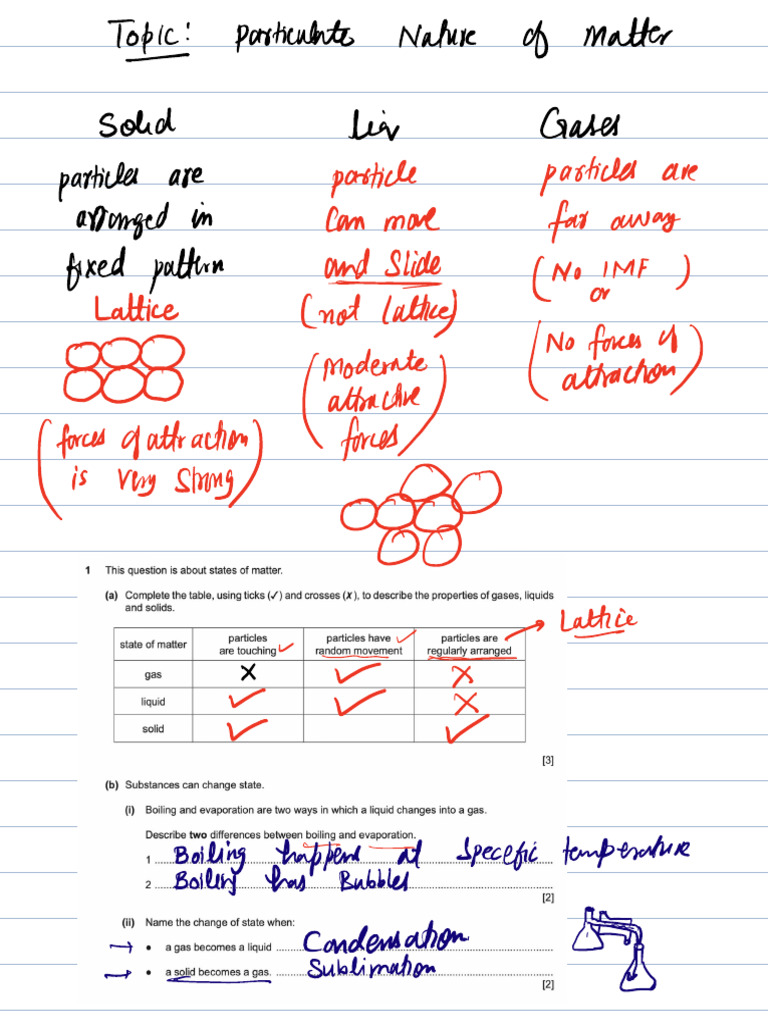 Topic: Particulate Nature of Matter
Solid
particles are
arranged in
fixed pattern
Lattice
(forces of attraction
is very strong)
Liq
particle
can move
and slide
(not lattice)
(Moderate
attractive
forces)
Gases
particles are
far away
(No IMF)
or
(No forces of
attraction)
1 This question is about states of matter.
(a) Complete the table, using ticks (✓) and crosses (✗), to describe the properties of gases, liquids
and solids.
Lattice
state of matter particles are touching ✓ particles have random movement ✓ particles are regularly arranged
gas ✗ ✓ ✗
liquid ✓ ✓ ✗
solid ✓ ✓
[3]
(b) Substances can change state.
(i) Boiling and evaporation are two ways in which a liquid changes into a gas.
Describe two differences between boiling and evaporation.
1 Boiling happens at Specefic temperature
2 Boiling has Bubbles
[2]
(ii) Name the change of state when:
→ • a gas becomes a liquid Condensation
→ • a solid becomes a gas. Sublimation
[2]